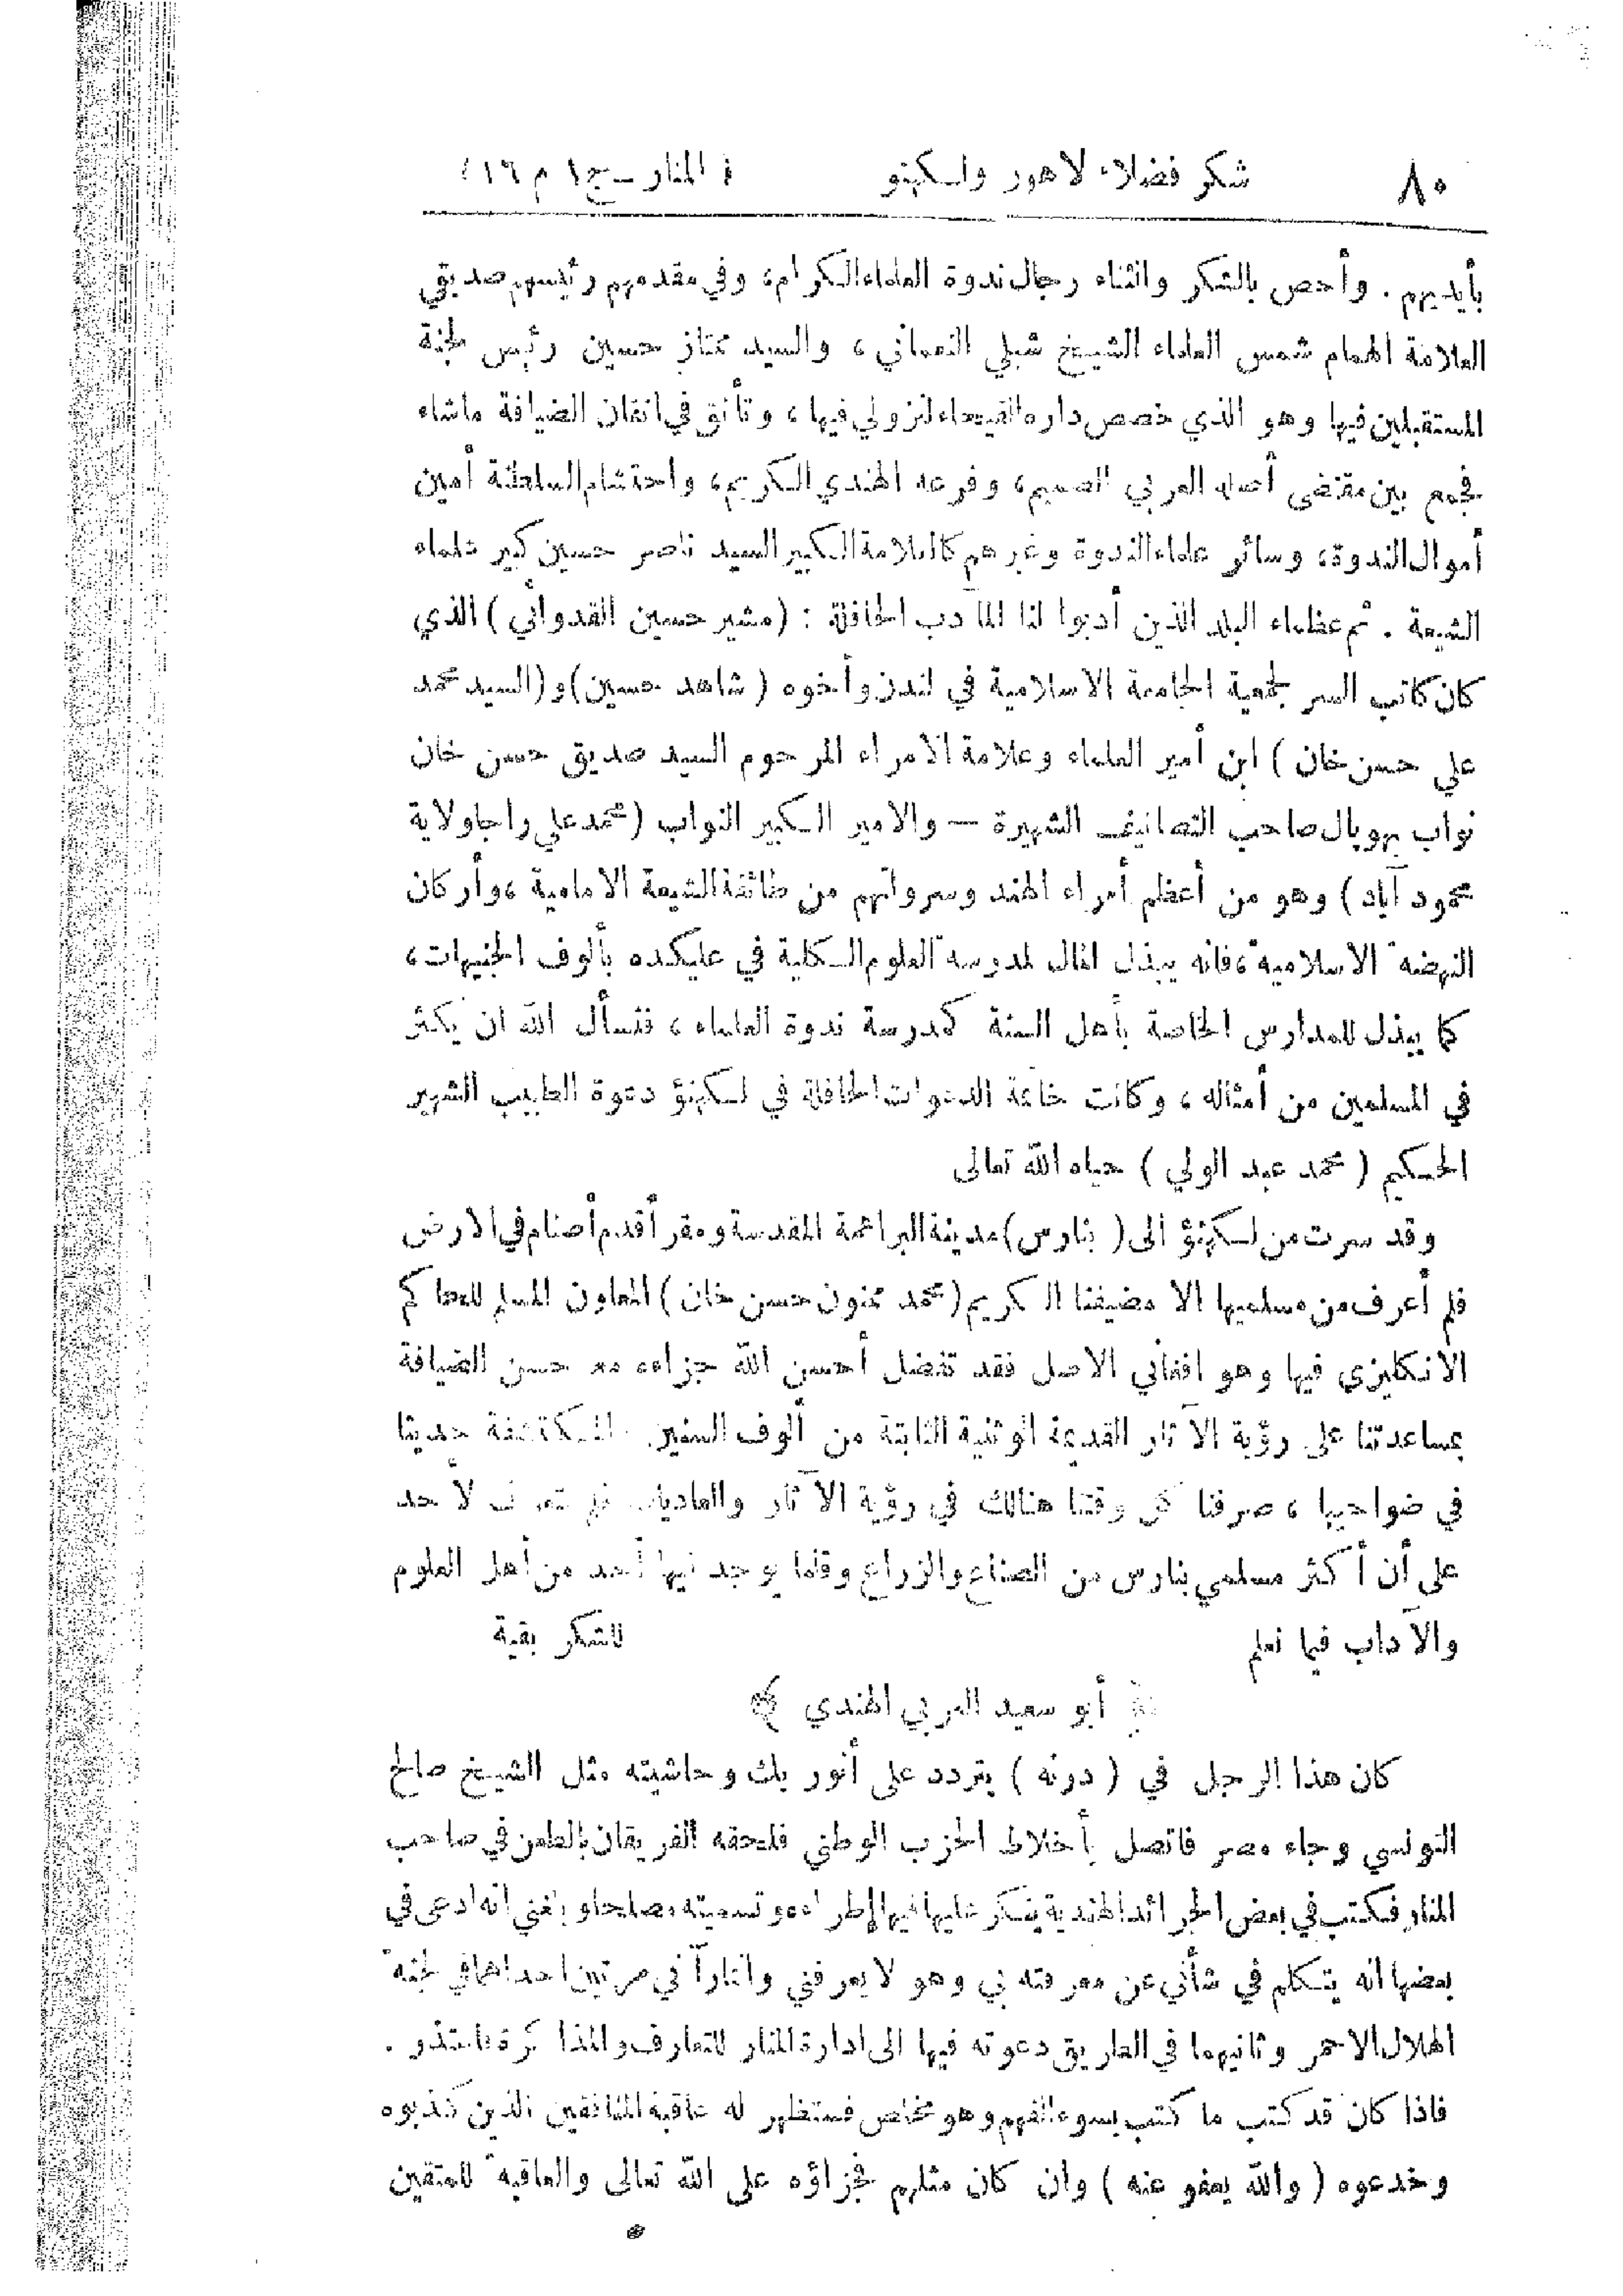 ٨٠ شكر فضلاء لاهور ولـكهنو ( المنار ــ ج ١ م ١٦ )
بأيديهم . وأخص بالشكر والثناء رجال ندوة العلماء الـكرام ، وفي مقدمهم رئيسهم صديقي
العلامة الهمام شمس العلماء الشيـخ شبلي النعماني ، والسيد ممتاز حسين رئيس لجنة
المستقبلين فيها وهو الذي خصص داره الفيحاء لنزولي فيها ، وتأنق في اتقان الضيافة ماشاء
فجمع بين مقتضى أصله العربي الصميم ، وفرعه الهندي الـكريم ، واحتشام السلطنة أمين
أموال الندوة ، وسائر علماء الندوة وغيرهم كالعلامة الـكبير السيد ناصر حسين كبير علماء
الشيعة . ثم عظماء البلد الذين أدبوا لنا المآدب الحافلة : ( مشير حسين القدوائي ) الذي
كان كاتب السر لجمعية الجامعة الاسلامية في لندن وأخوه ( شاهد حسين ) و ( السيد محمد
علي حسن خان ) ابن أمير العلماء وعلامة الامراء المرحوم السيد صديق حسن خان
نواب بهوبال صاحب التصانيف الشهيرة — والامير الـكبير النواب ( محمد علي راجا ولاية
محمود آباد ) وهو من أعظم أمراء الهند وسرواتهم من طائفة الشيعة الامامية ، وأركان
النهضة الاسلامية ، فانه يبذل المال لمدرسة العلوم الـكلية في عليكده بألوف الجنيهات ،
كما يبذل للمدارس الخاصة بأهل السنة كمدرسة ندوة العلماء ، فنسأل الله ان يكثر
في المسلمين من أمثاله ، وكانت خاتمة الدعوات الحافلة في لـكهنؤ دعوة الطبيب الشهير
الحـكيم ( محمد عبد الولي ) حياه الله تعالى
وقد سرت من لـكهنؤ الى ( بنارس ) مدينة البراهمة المقدسة ومقر أقدم أصنام في الارض
فلم أعرف من مسلميها الا مضيفنا الـكريم ( محمد ممنون حسن خان ) المعاون المسلم للحاكم
الانكليزي فيها وهو افغاني الاصل فقد تفضل أحسن الله جزاءه مع حسن الضيافة
بمساعدتنا على رؤية الآثار القديمة الوثنية الثابتة من ألوف السنين المـكتشفة حديثا
في ضواحيها ، صرفنا كل وقتنا هنالك في رؤية الآثار والعاديات فلم لأحد
على أن أكثر مسلمي بنارس من الصناع والزراع وقلما يوجد فيها أحد من أهل العلوم
والآداب فيما نعلم للشكر بقية
﴿ أبو سعيد العربي الهندي ﴾
كان هذا الرجل في ( درنه ) يتردد على أنور بك وحاشيته مثل الشيـخ صالح
التونسي وجاء مصر فاتصل بأخلاط الحزب الوطني فلحقه الفريقان بالطعن في صاحب
المنار فـكتب في بعض الجرائد الهندية ينـكر عليها فيها إطراءه وتسميته مصلحا وبلغني انه ادعى في
بعضها أنه يتـكلم في شأني عن معرفته بي وهو لا يعرفني وانما رآني مرتين احداهما في لجنة
الهلال الاحمر وثانيهما في الطريق دعوته فيها الى ادارة المنار للتعارف والمذاكرة فاعتذر .
فاذا كان قد كتب ما كتب بسوء الفهم وهو مخلص فستظهر له عاقبة المنافقين الذين كذبوه
وخدعوه ( والله يعفو عنه ) وان كان مثلهم فجزاؤه على الله تعالى والعاقبة للمتقين